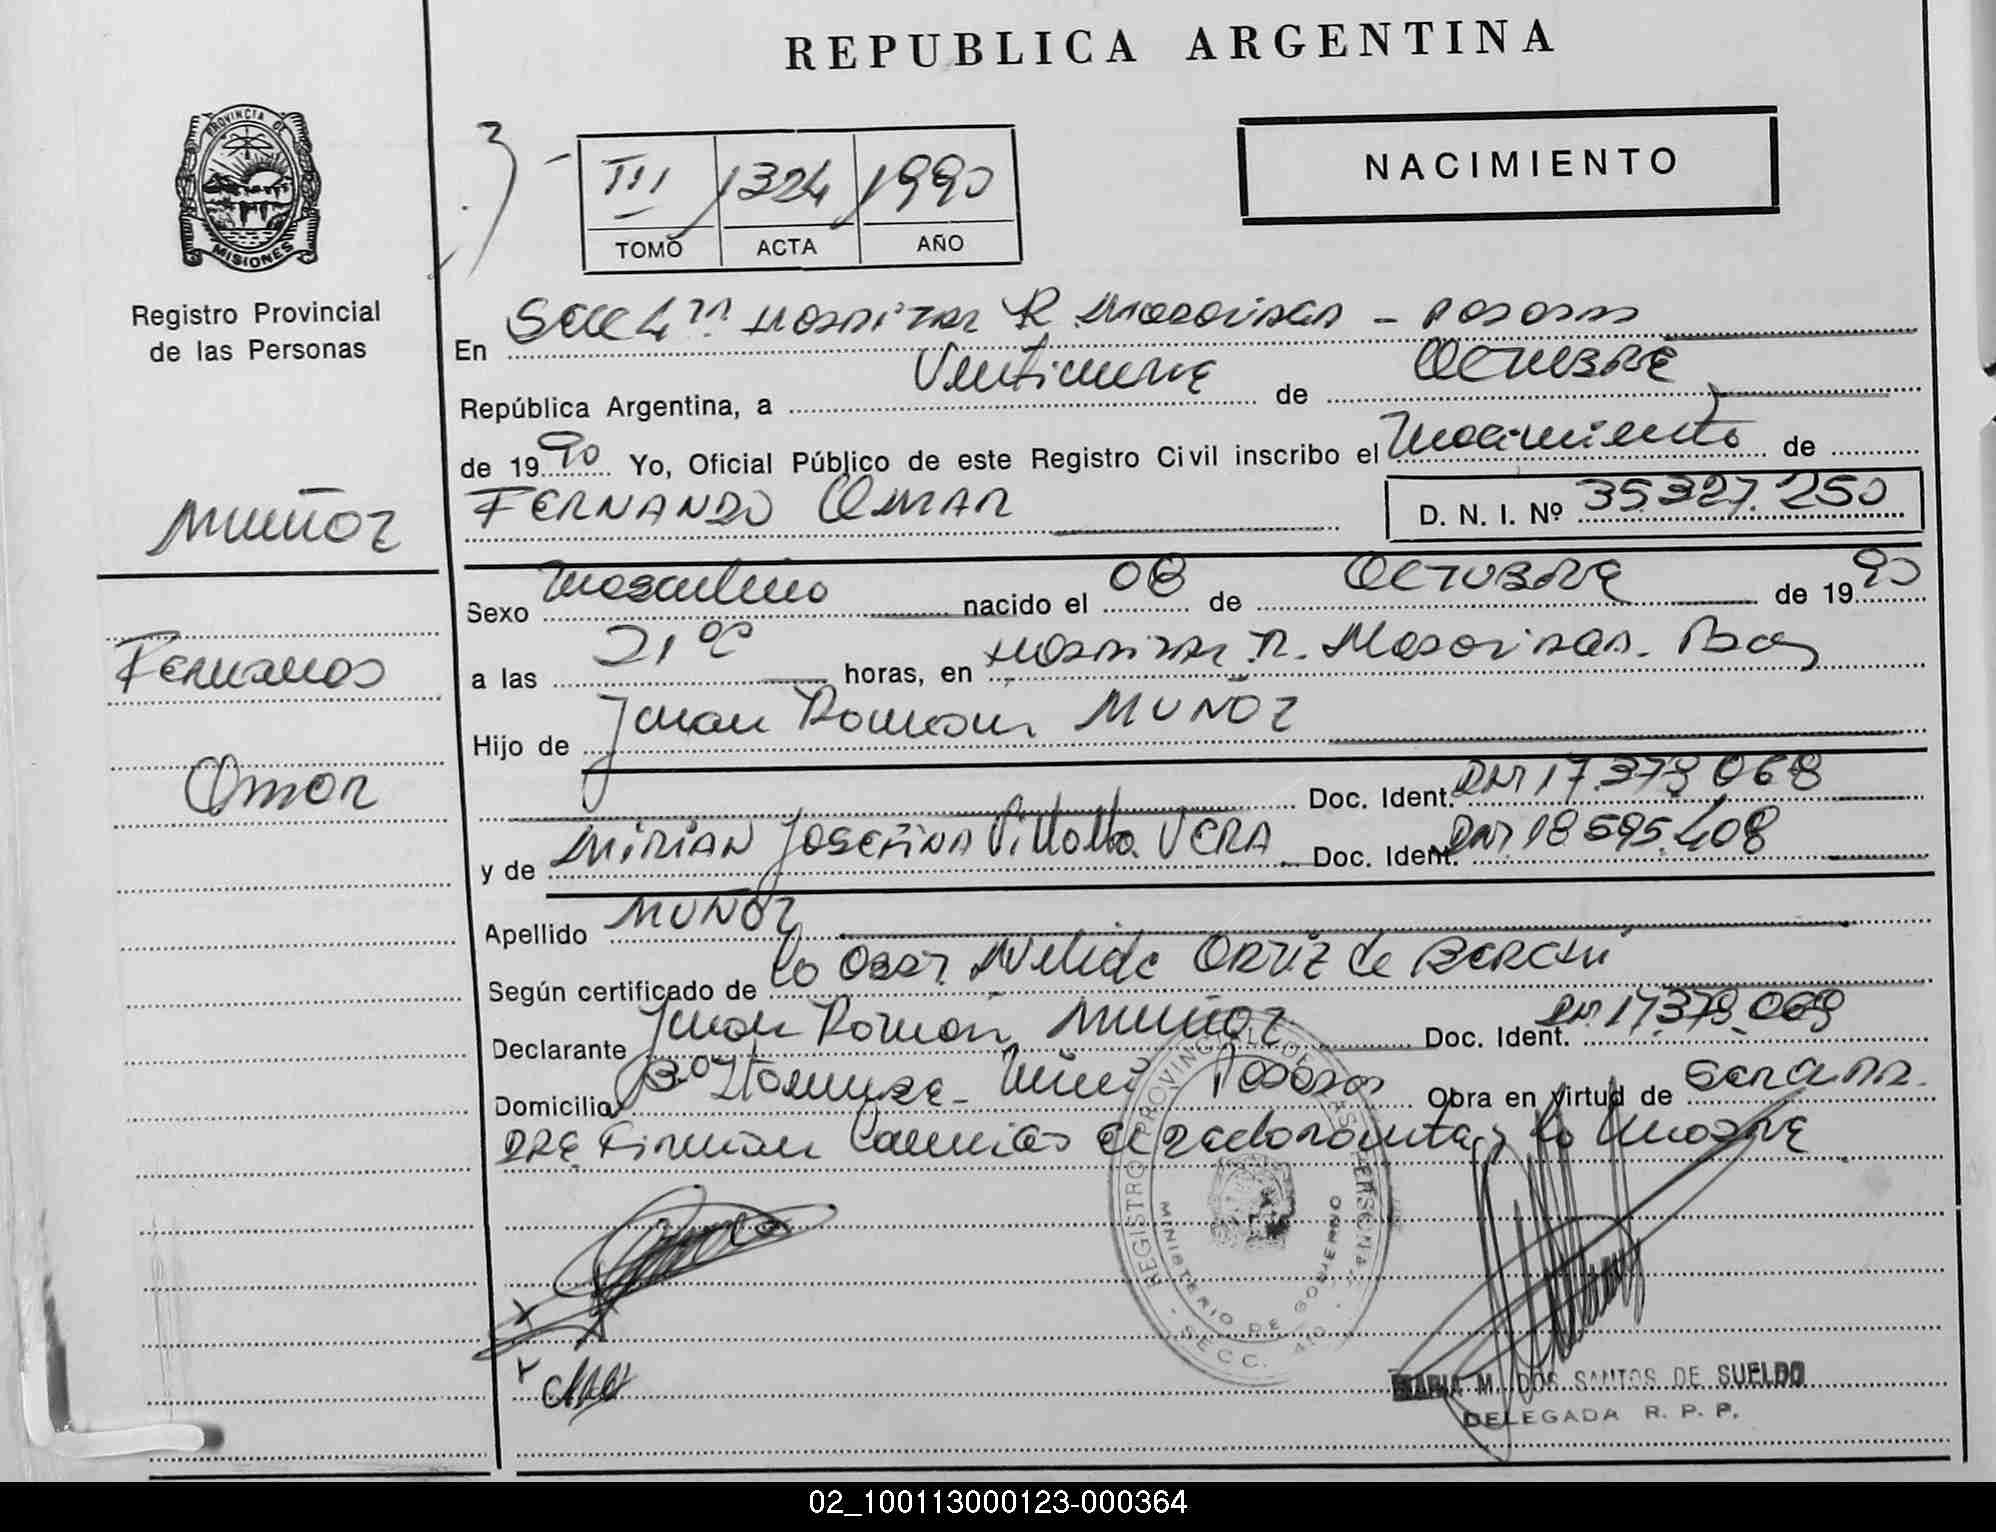 REPUBLICA ARGENTINA
PROVINCIA DE
MISIONES
Registro Provincial
de las Personas
NACIMIENTO
III 1324 1990
TOMO ACTA AÑO
En Secc 4ta Hospital R. Madariaga - Posadas
República Argentina, a Veintinueve de Octubre
de 1990 Yo, Oficial Público de este Registro Civil inscribo el Nacimiento de
MUÑOZ
FERNANDO OMAR
D. N. I. Nº 35.327.250
Sexo Masculino nacido el 08 de OCTUBRE de 1990
Fernando
a las 21 00 horas, en Hospital R. Madariaga.
Hijo de Juan Ramon MUÑOZ
Omar
Doc. Ident. DNI 17.379.068
y de MIRIAN JOSEFINA Villalba VERA Doc. Ident. DNI 18.595.408
Apellido MUÑOZ
Según certificado de la Obst. Nelida ORTIZ de
Declarante Juan Ramon MUÑOZ Doc. Ident. DNI 17.379.068
Domicilio Bº Posadas Obra en virtud de ser el Pa-
dre Firman Conmigo el declarante y la madre
REGISTRO PROVINCIAL DE LAS PERSONAS
MINISTERIO DE GOBIERNO
SECC.
MARIA M. DOS SANTOS DE SUELDO
DELEGADA R. P. P.
02_100113000123-000364